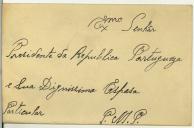 Exmo Senhor
Presidente da Republica Portugueza
e Sua Dignissima Esposa
Particular P. M. P.